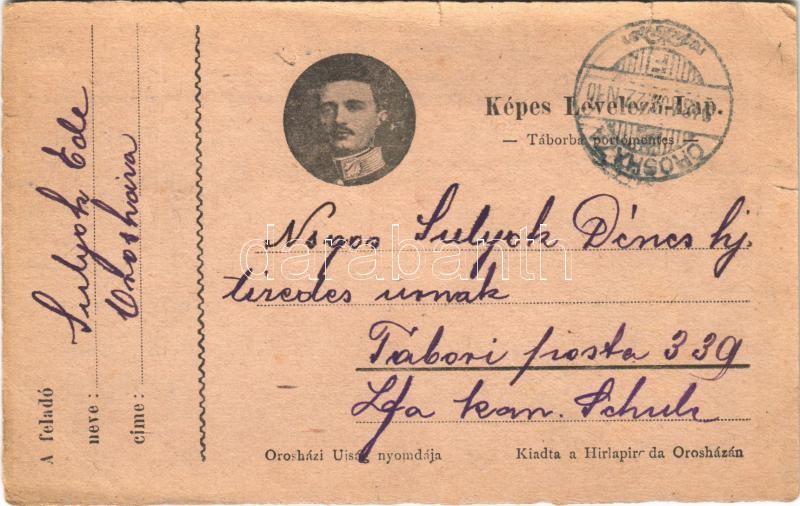 Képes Levelező-Lap.
— Táborba portómentes —
OROSHÁZA
Nsgos Sulyok Dénes hj.
tüzedes urnak
Tábori posta 339
Lfa kan. Schule
Orosházi Ujság nyomdája
Kiadta a Hirlapiroda Orosházán
A feladó
neve: Sulyok Ede
cime: Orosháza
darabanth